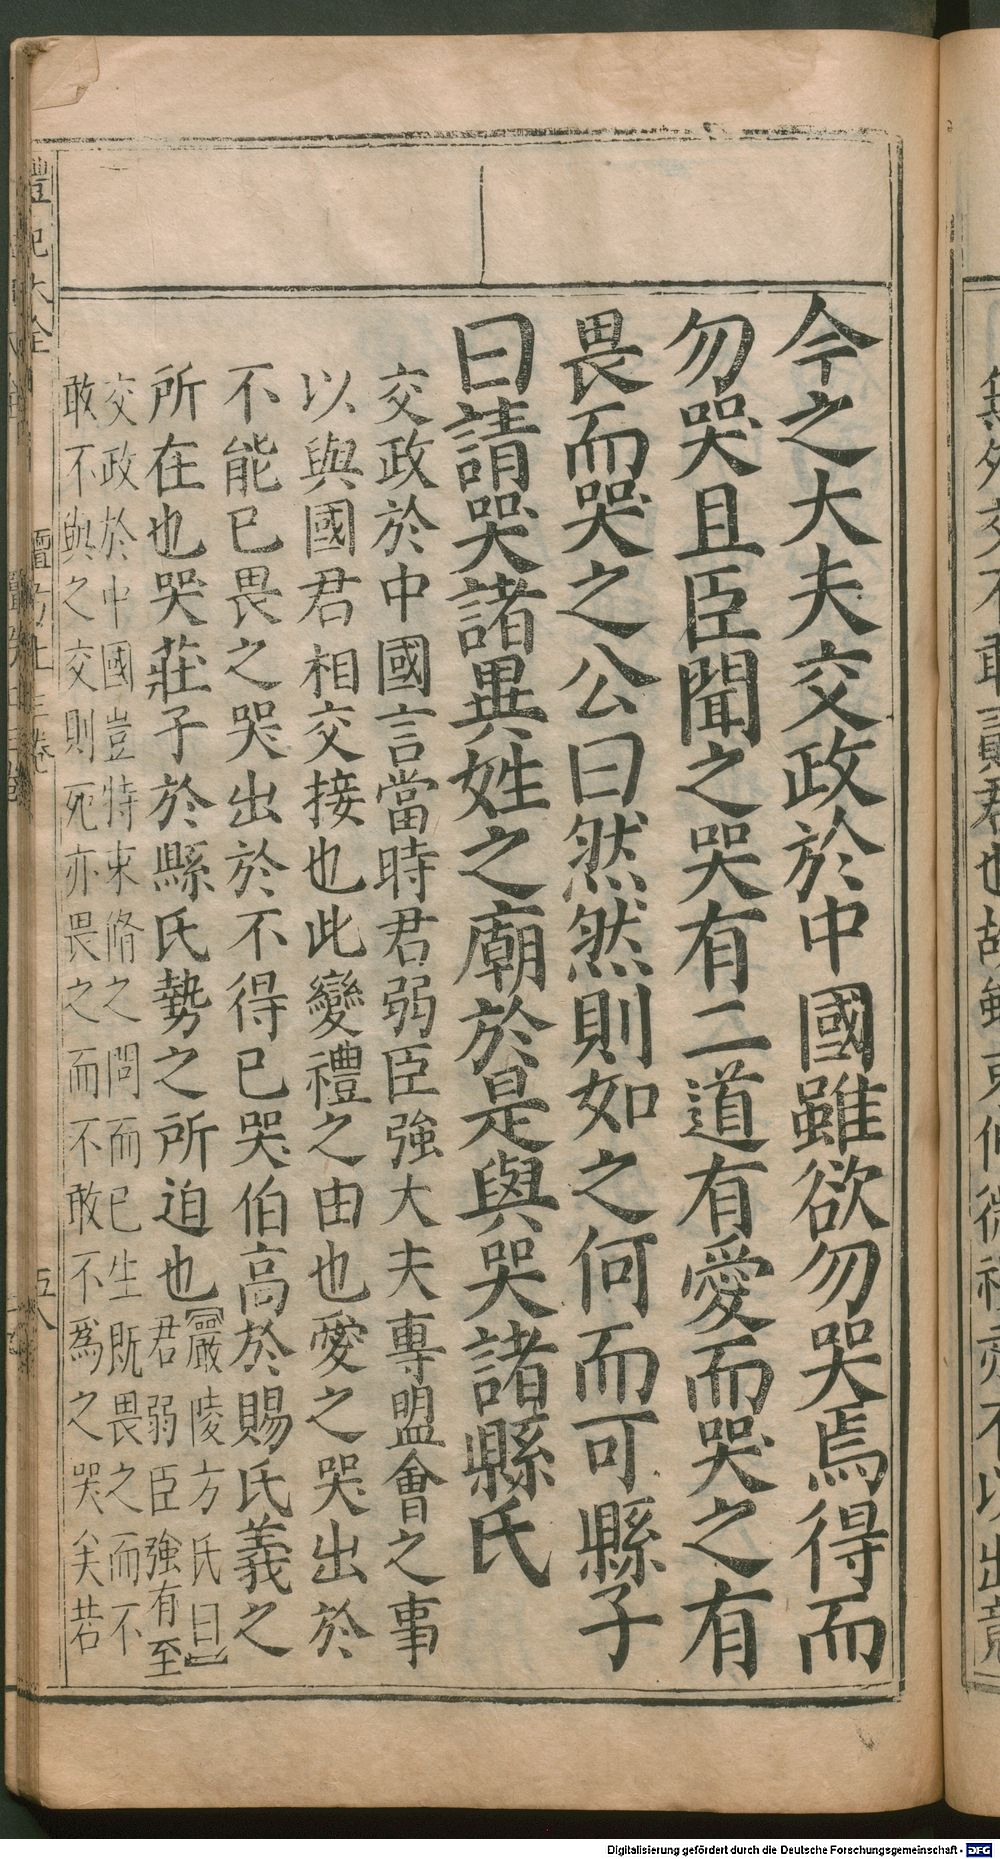 今之大夫交政於中國雖欲勿哭焉得而
勿哭且臣聞之哭有二道有愛而哭之有
畏而哭之公曰然然則如之何而可縣子
曰請哭諸異姓之廟於是與哭諸縣氏
交政於中國言當時君弱臣強大夫專盟會之事
以與國君相交接也此變禮之由也愛之哭出於
不能已畏之哭出於不得已哭伯高於賜氏義之
所在也哭莊子於縣氏勢之所迫也
【嚴陵方氏曰】
君弱臣強有至
交政於中國豈特束脩之問而已生既畏之而不
敢不與之交則死亦畏之而不敢不為之哭矣若
禮記大全
檀弓上三卷
五八
Digitalisierung gefördert durch die Deutsche Forschungsgemeinschaft - DFG